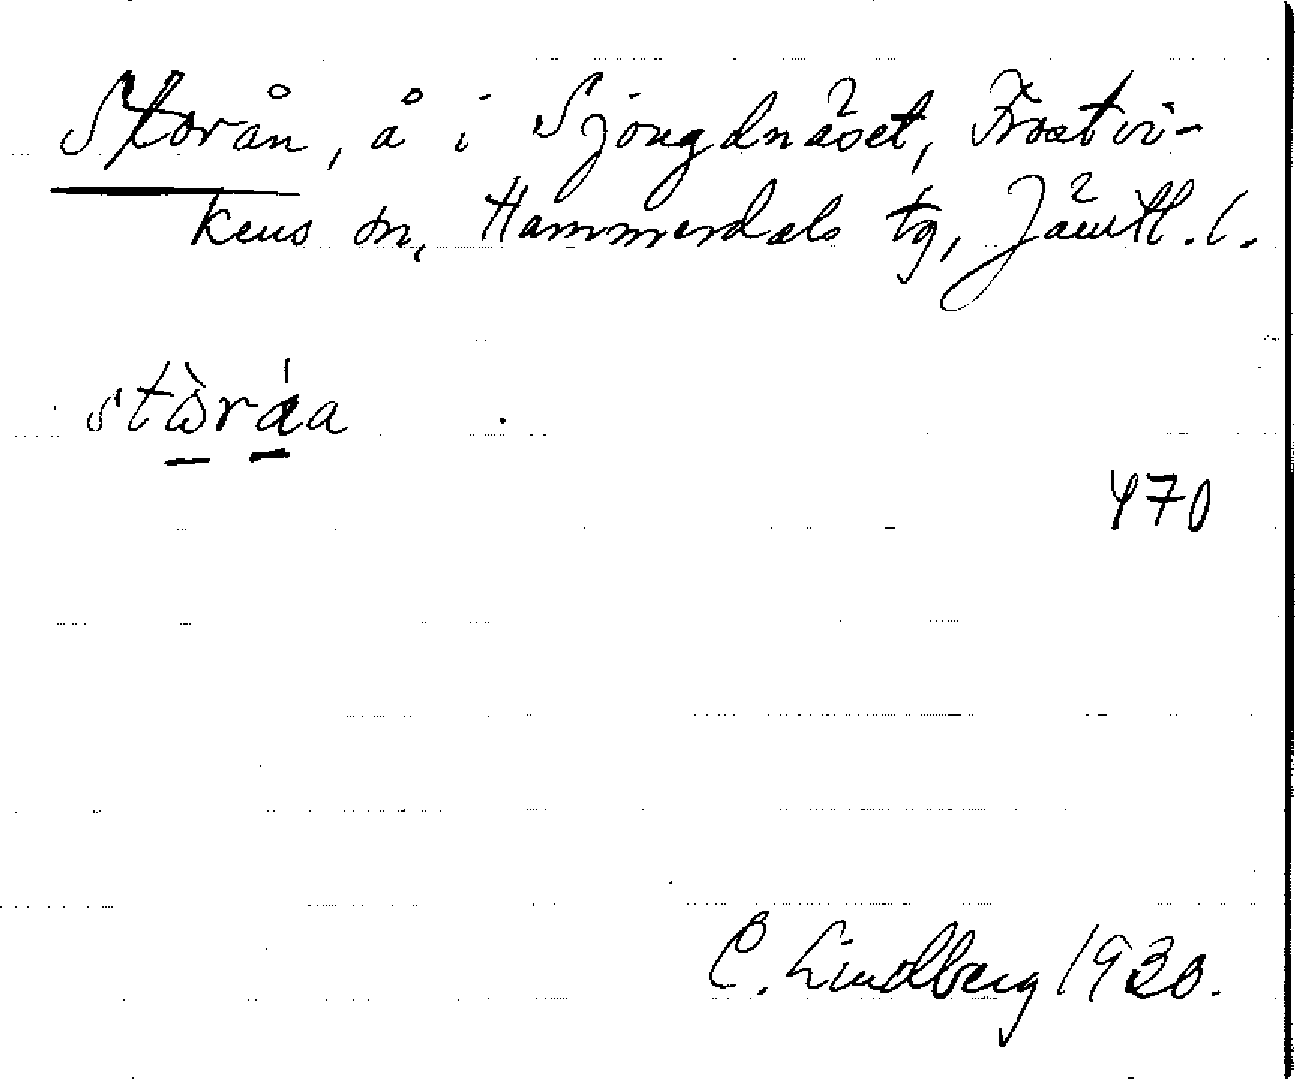 Storån, å i Sjougdnäset, Frostvi-
kens sn, Hammerdals tg, Jämtl. l.
stòráa
470
C. Lindberg 1930.